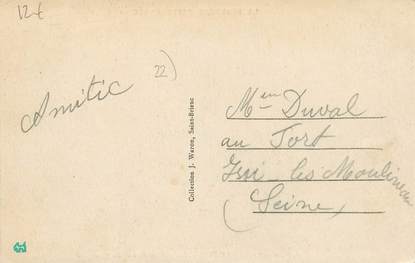 12€
22)
Amitié
Collection J. Waron, Saint-Brieuc
Mem Duval
au Fort
Issi-les Moulineau
(Seine)